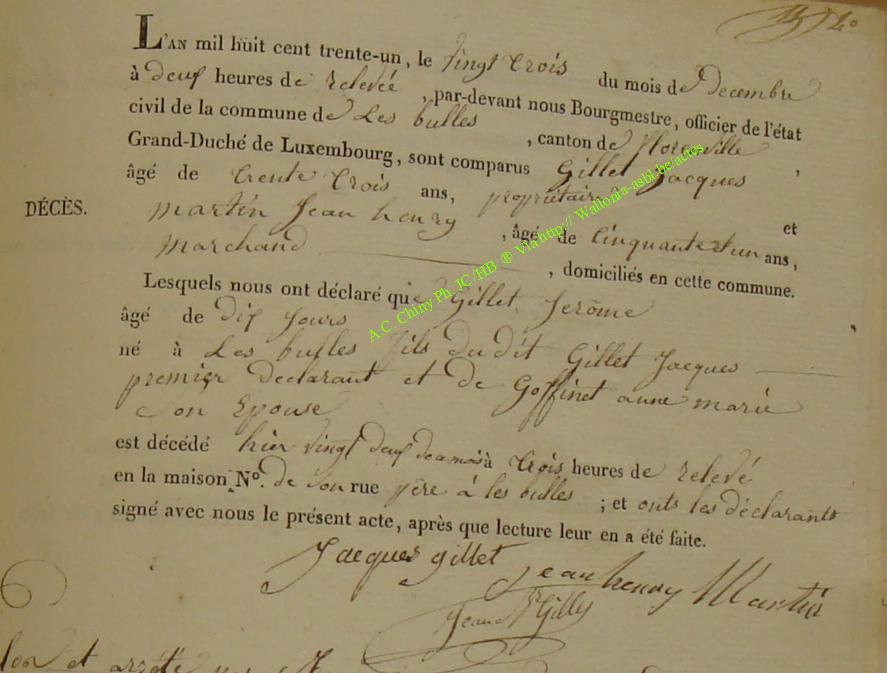 L'AN mil huit cent trente-un, le vingt trois du mois de Decembre
à deux heures de relevée, par-devant nous Bourgmestre, officier de l'état
civil de la commune de Les bulles, canton de florenville,
Grand-Duché de Luxembourg, sont comparus Gillet Jacques
âgé de trente trois ans, propriétaire et
DÉCÈS.
martin Jean henry, âgé de Cinquante et un ans,
marchand, domiciliés en cette commune.
Lesquels nous ont déclaré que Gillet Jerôme
âgé de dix Jours
né à Les bulles fils du dit Gillet Jacques
premier declarant et de Goffinet anne marie
Son Epouse
est décédé hier vingt deux de ce mois à trois heures de relevé
en la maison N.º de Son rue père à les bulles; et onts les déclarants
signé avec nous le présent acte, après que lecture leur en a été faite.
Jacques gillet
Jean henry Martin
Jean Gilles
A.C. Chiny Ph. JC/HB ® Via http://Wallonia-asbl.be/actes